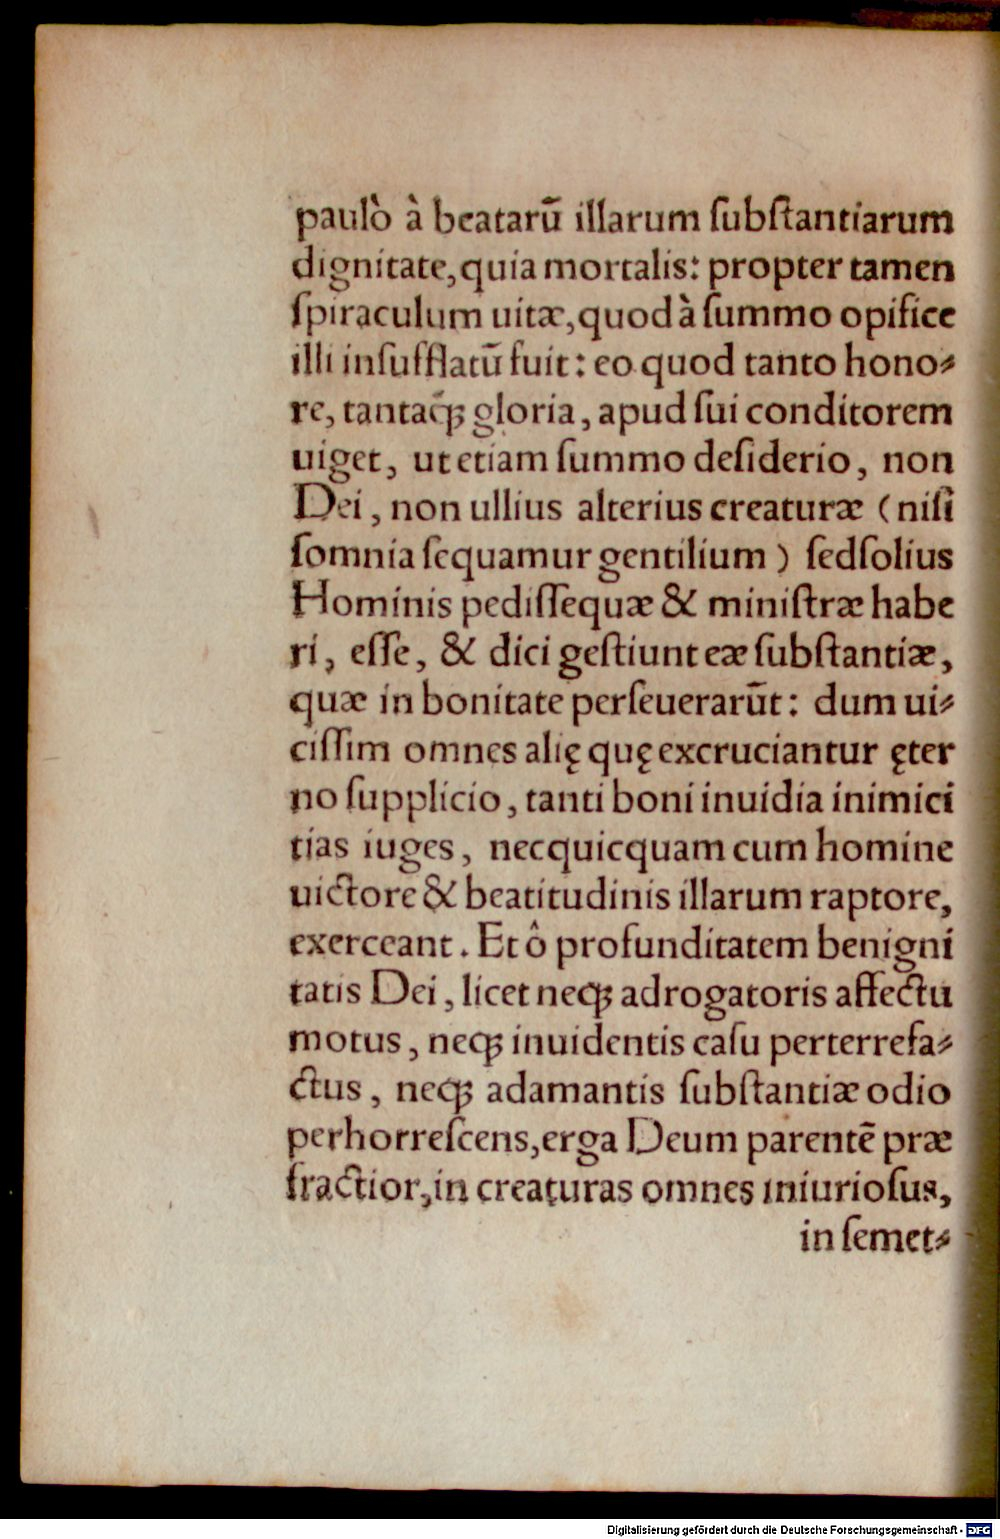 paulò à beatarũ illarum ſubſtantiarum
dignitate, quia mortalis: propter tamen
ſpiraculum uitæ, quod à ſummo opifice
illi inſufflatũ fuit: eo quod tanto hono⸗
re, tantaq́ꝫ gloria, apud ſui conditorem
uiget, ut etiam ſummo deſiderio, non
Dei, non ullius alterius creaturæ (niſi
ſomnia ſequamur gentilium) ſed ſolius
Hominis pediſſequæ & miniſtræ habe
ri, eſſe, & dici geſtiunt eæ ſubſtantiæ,
quæ in bonitate perſeuerarũt: dum ui⸗
ciſſim omnes alię quę excruciantur ęter
no ſupplicio, tanti boni inuidia inimici
tias iuges, nec quicquam cum homine
uictore & beatitudinis illarum raptore,
exerceant. Et ô profunditatem benigni
tatis Dei, licet neqꝫ adrogatoris affectu
motus, neqꝫ inuidentis caſu perterrefa⸗
ctus, neqꝫ adamantis ſubſtantiæ odio
perhorreſcens, erga Deum parentẽ præ
fractior, in creaturas omnes iniurioſus,
in ſemet⸗
Digitalisierung gefördert durch die Deutsche Forschungsgemeinschaft - DFG